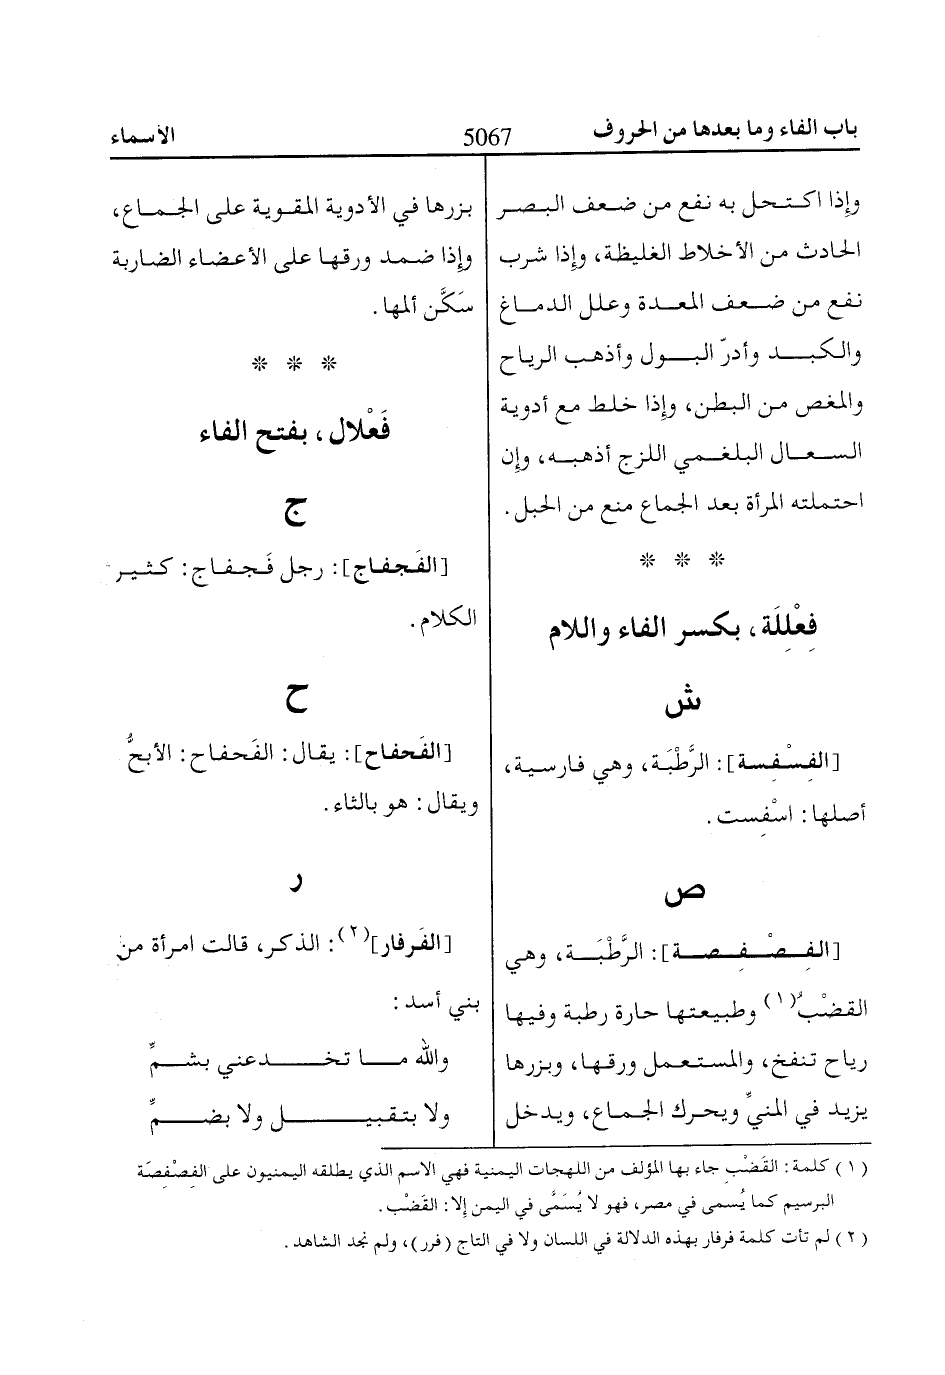 باب الفاء وما بعدها من الحروف
5067
الأسماء
وإذا اكتحل به نفع من ضعف البصر
الحادث من الأخلاط الغليظة، وإذا شرب
نفع من ضعف المعدة وعلل الدماغ
والكبد وأدرّ البول وأذهب الرياح
والمغص من البطن، وإذا خلط مع أدوية
السعال البلغمي اللزج أذهبه، وإن
احتملته المرأة بعد الجماع منع من الحبل.
* * *
فِعْلِلَة، بكسر الفاء واللام
ش
[الفِسْفِسة]: الرَّطْبَة، وهي فارسية،
أصلها: اسْفِست.
ص
[الفِصْفِصة]: الرَّطْبَة، وهي
القضْبُ(١) وطبيعتها حارة رطبة وفيها
رياح تنفخ، والمستعمل ورقها، وبزرها
يزيد في المنيِّ ويحرك الجماع، ويدخل
بزرها في الأدوية المقوية على الجماع،
وإذا ضمد ورقها على الأعضاء الضاربة
سَكَّن ألمها.
* * *
فَعْلال، بفتح الفاء
ج
[الفَجفاج]: رجل فَجفاج: كثير
الكلام.
ح
[الفَحفاح]: يقال: الفَحفاح: الأبحُّ
ويقال: هو بالثاء.
ر
[الفَرفار](٢): الذكر، قالت امرأة من
بني أسد:
والله ما تخدعني بشمٍّ
ولا بتقبيل ولا بضمٍّ
(١) كلمة: القَضْب جاء بها المؤلف من اللهجات اليمنية فهي الاسم الذي يطلقه اليمنيون على الفِصْفِصَة
البرسيم كما يُسمى في مصر، فهو لا يُسَمَّى في اليمن إلا: القَضْب.
(٢) لم تأت كلمة فرفار بهذه الدلالة في اللسان ولا في التاج (فرر)، ولم نجد الشاهد.